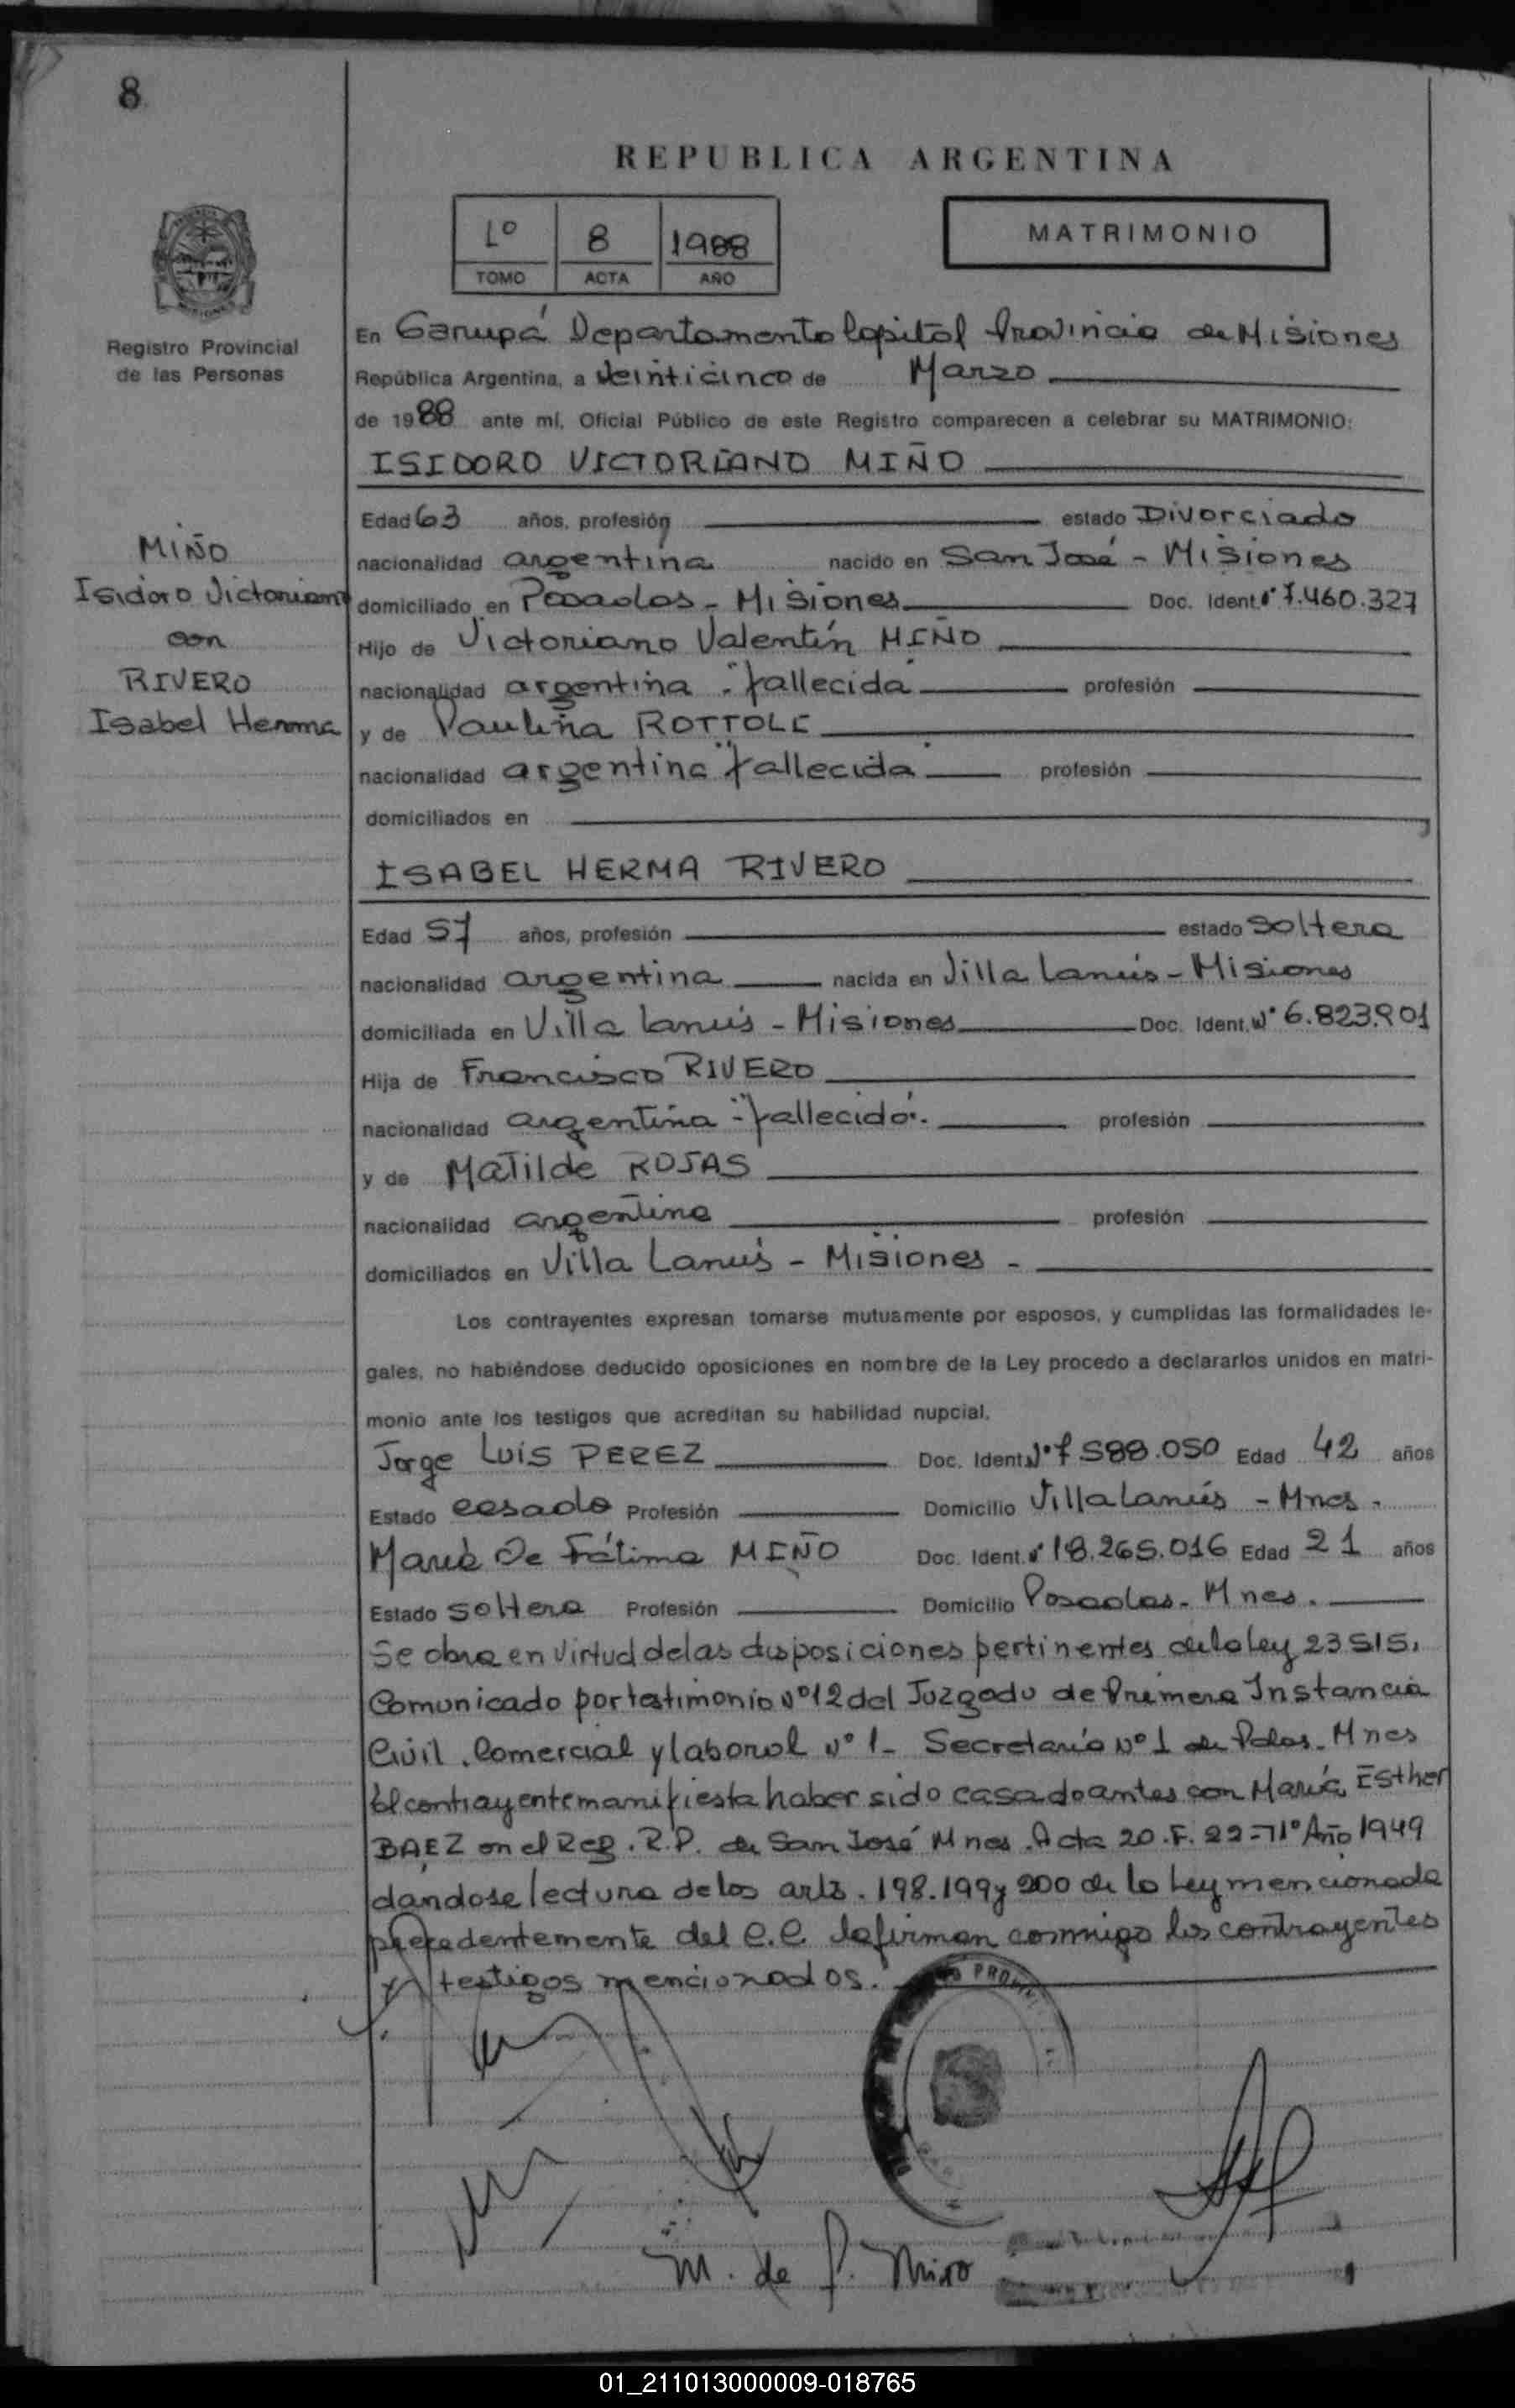 8
REPUBLICA ARGENTINA
1º 8 1988
TOMO ACTA AÑO
MATRIMONIO
Registro Provincial
de las Personas
En Garupá Departamento Capital Provincia de Misiones
República Argentina, a veinticinco de Marzo
de 1988 ante mí, Oficial Público de este Registro comparecen a celebrar su MATRIMONIO:
ISIDORO VICTORIANO MIÑO
MIÑO
Isidoro Victoriano
con
RIVERO
Isabel Herma
Edad 63 años, profesión estado Divorciado
nacionalidad argentina nacido en San José - Misiones
domiciliado en Posadas - Misiones Doc. Ident. Nº 7.460.327
Hijo de Victoriano Valentín MIÑO
nacionalidad argentina - "fallecida" profesión
y de Paulina ROTTOLI
nacionalidad argentina "fallecida" profesión
domiciliados en
ISABEL HERMA RIVERO
Edad 57 años, profesión estado soltera
nacionalidad argentina nacida en Villa Lanús - Misiones
domiciliada en Villa Lanús - Misiones Doc. Ident. Nº 6.823.901
Hija de Francisco RIVERO
nacionalidad argentina - "fallecido". profesión
y de Matilde ROJAS
nacionalidad argentina profesión
domiciliados en Villa Lanús - Misiones -
Los contrayentes expresan tomarse mutuamente por esposos, y cumplidas las formalidades le-
gales, no habiéndose deducido oposiciones en nombre de la Ley procedo a declararlos unidos en matri-
monio ante los testigos que acreditan su habilidad nupcial.
Jorge Luis PEREZ Doc. Ident. Nº 7.588.050 Edad 42 años
Estado casado Profesión Domicilio Villa Lanús - Mnes.
María De Fátima MIÑO Doc. Ident. Nº 18.265.016 Edad 21 años
Estado soltera Profesión Domicilio Posadas - Mnes.
Se obra en virtud de las disposiciones pertinentes de la ley 23515.
Comunicado por testimonio Nº 12 del Juzgado de Primera Instancia
Civil, Comercial y laboral Nº 1 - Secretaría Nº 1 de Pdas. Mnes
El contrayente manifiesta haber sido casado antes con María Esther
BAEZ en el Reg. R.P. de San José Mnes. Acta 20. F. 22 - Tº 1º Año 1949
dandose lectura de los arts. 198. 199 y 200 de la Ley mencionada
precedentemente del C.C. la firman conmigo los contrayentes
y testigos mencionados.
M. de f. Miño
01_211013000009-018765